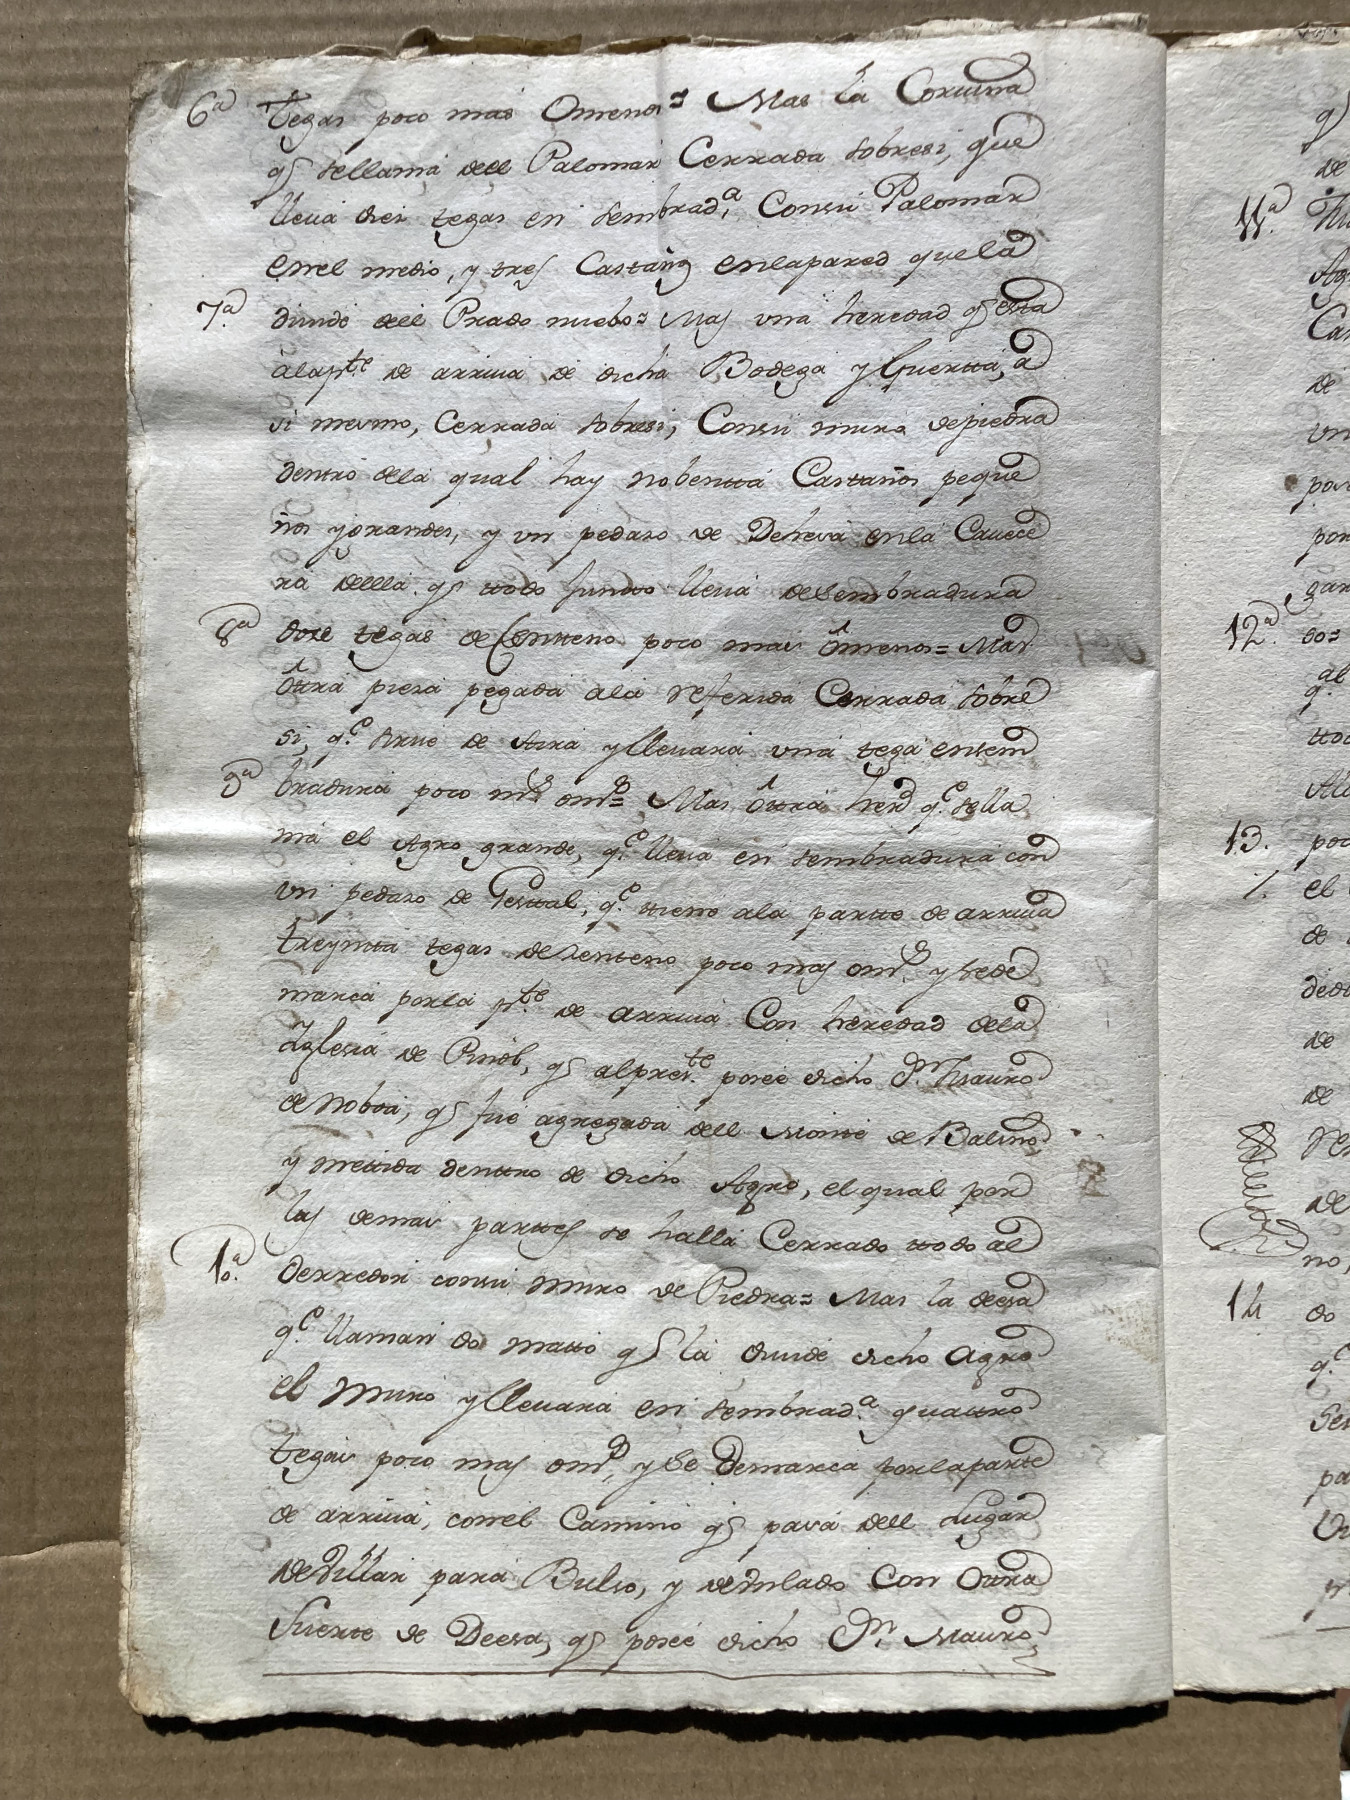 6ª tegas poco mas Omenos= Mas la Cortiña
q̃ sellama dell Palomar Cerrada sobresi, que
lleua diez tegas en sembradª, Consu Palomar
enel medio, y tres Castaños enlapared quela
7ª diuide dell Prado nuebo= Mas vna heredad q̃ esta
alapte. de arriua de dicha Bodega y Guertta, a
si mesmo, Cerrada sobresi, Consu muro depiedra
dentro dela qual hay nobentta Castaños peque
ños ygrandes, y vn pedazo de Dehesa enla Cauece
ra dellla q̃ ttodo juntto lleua desembradura
8ª doze tegas de Centteno poco mas ômenos= Mas
ôttra pieza pegada ala referida Cerrada sobre
si, q.e sirue de Aira yLleuara vna tega ensem
9ª bradura poco ms. oms.= Mas ôttra herd q.e sella
ma el Agro grande, q.e lleua en sembradura con
vn pedazo de Testtal, q.e ttiene ala partte de arriua
treyntta tegas desenteno poco mas oms. y sede
marca porla pte. de arriua Con heredad dela
Iglesia de Piñol, q̃ alpreste. posee dicho Dn. Mauro
de Noboa, q̃ fue agregada dell Monte de
y mettida denttro de dicho Agro, el qual por
las demas parttes se halla Cerrado ttodo al
10ª derredor consu muro de Piedra= Mas la deesa
q.e llaman do matto q̃ la diuide dicho Agro
el muro yLleuara en sembrad.ª quattro
tegas poco mas oms, y se demarca porlaparte
de arriua, conel Camino q̃ pasa dell Lugar
deVillar para Bulso, y devnlado Con Ottra
suerte de Deesa, q̃ posee dicho Dn. Mauro
11ª
de
12ª
so=
al
13. poc
el
de
de
de
no,
14 do
q.e